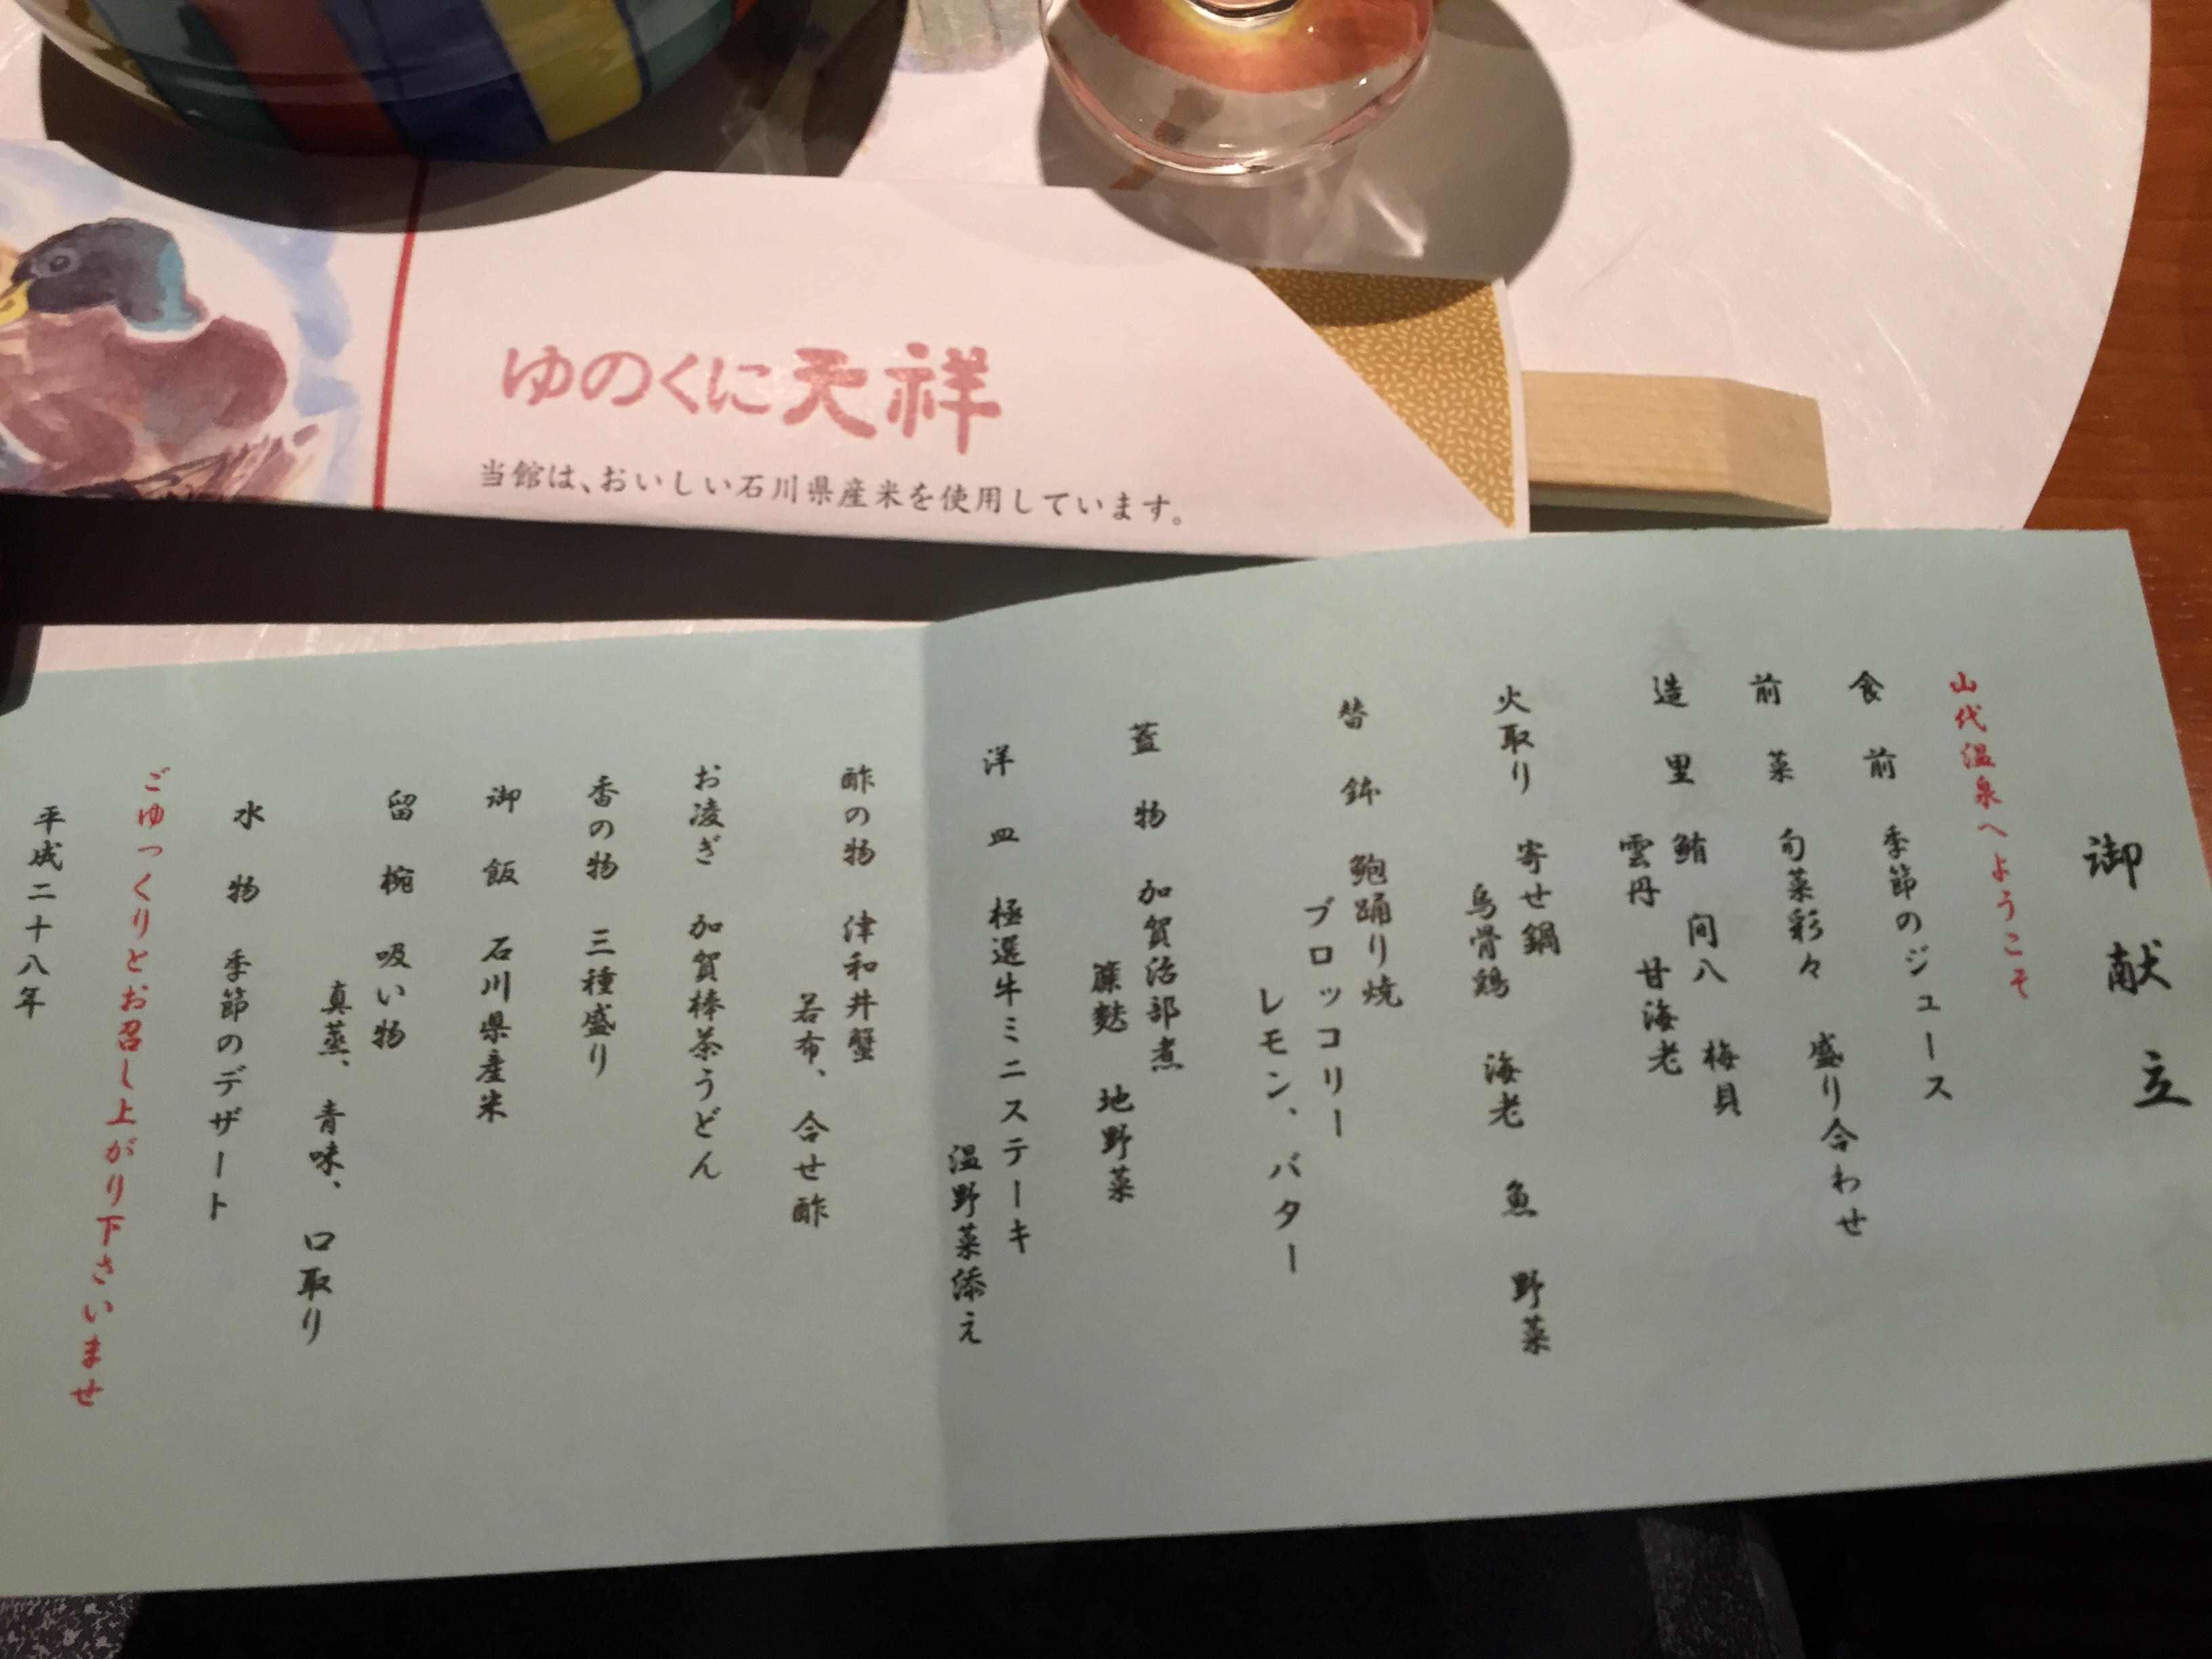 ゆのくに天祥
当館は、おいしい石川県産米を使用しています。
御献立
山代温泉へようこそ
食前 季節のジュース
前菜 旬菜彩々 盛り合わせ
造里 鮪 間八 梅貝
雲丹 甘海老
火取り 寄せ鍋
烏骨鶏 海老 魚 野菜
替鉢 鮑踊り焼
ブロッコリー
レモン、バター
蓋物 加賀治部煮
簾麩 地野菜
洋皿 極選牛ミニステーキ
温野菜添え
酢の物 津和井蟹
若布、合せ酢
お凌ぎ 加賀棒茶うどん
香の物 三種盛り
御飯 石川県産米
留椀 吸い物
真蒸、青味、口取り
水物 季節のデザート
ごゆっくりとお召し上がり下さいませ
平成二十八年